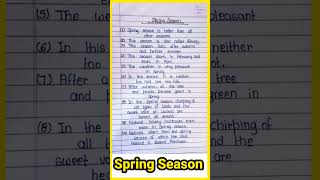 Spring Season
(1) Spring season is better than all
other seasons.
(2) This season is also called
(3) This season falls after autumn
and before summer.
(4) This season starts in February and
ends in April.
(5) The weather is very pleasant
in spring.
(6) In this season it is neither
too cold nor too hot.
(7) After autumn all the tree
and plants become green in
spring.
(8) In the spring season chirping of
all types of birds and the
sweet voice of cuckoo are
heard all around.
(9) Natural beauty increases even
more in spring season.
(10) Festivals start from the spring
season of which the Holi
festival is
(5) The we
(6) In this
(7) After a
and
(8) In the
sweet vo
pleasant
neither
too
tree
green in
Chirping of
the
Spring Season